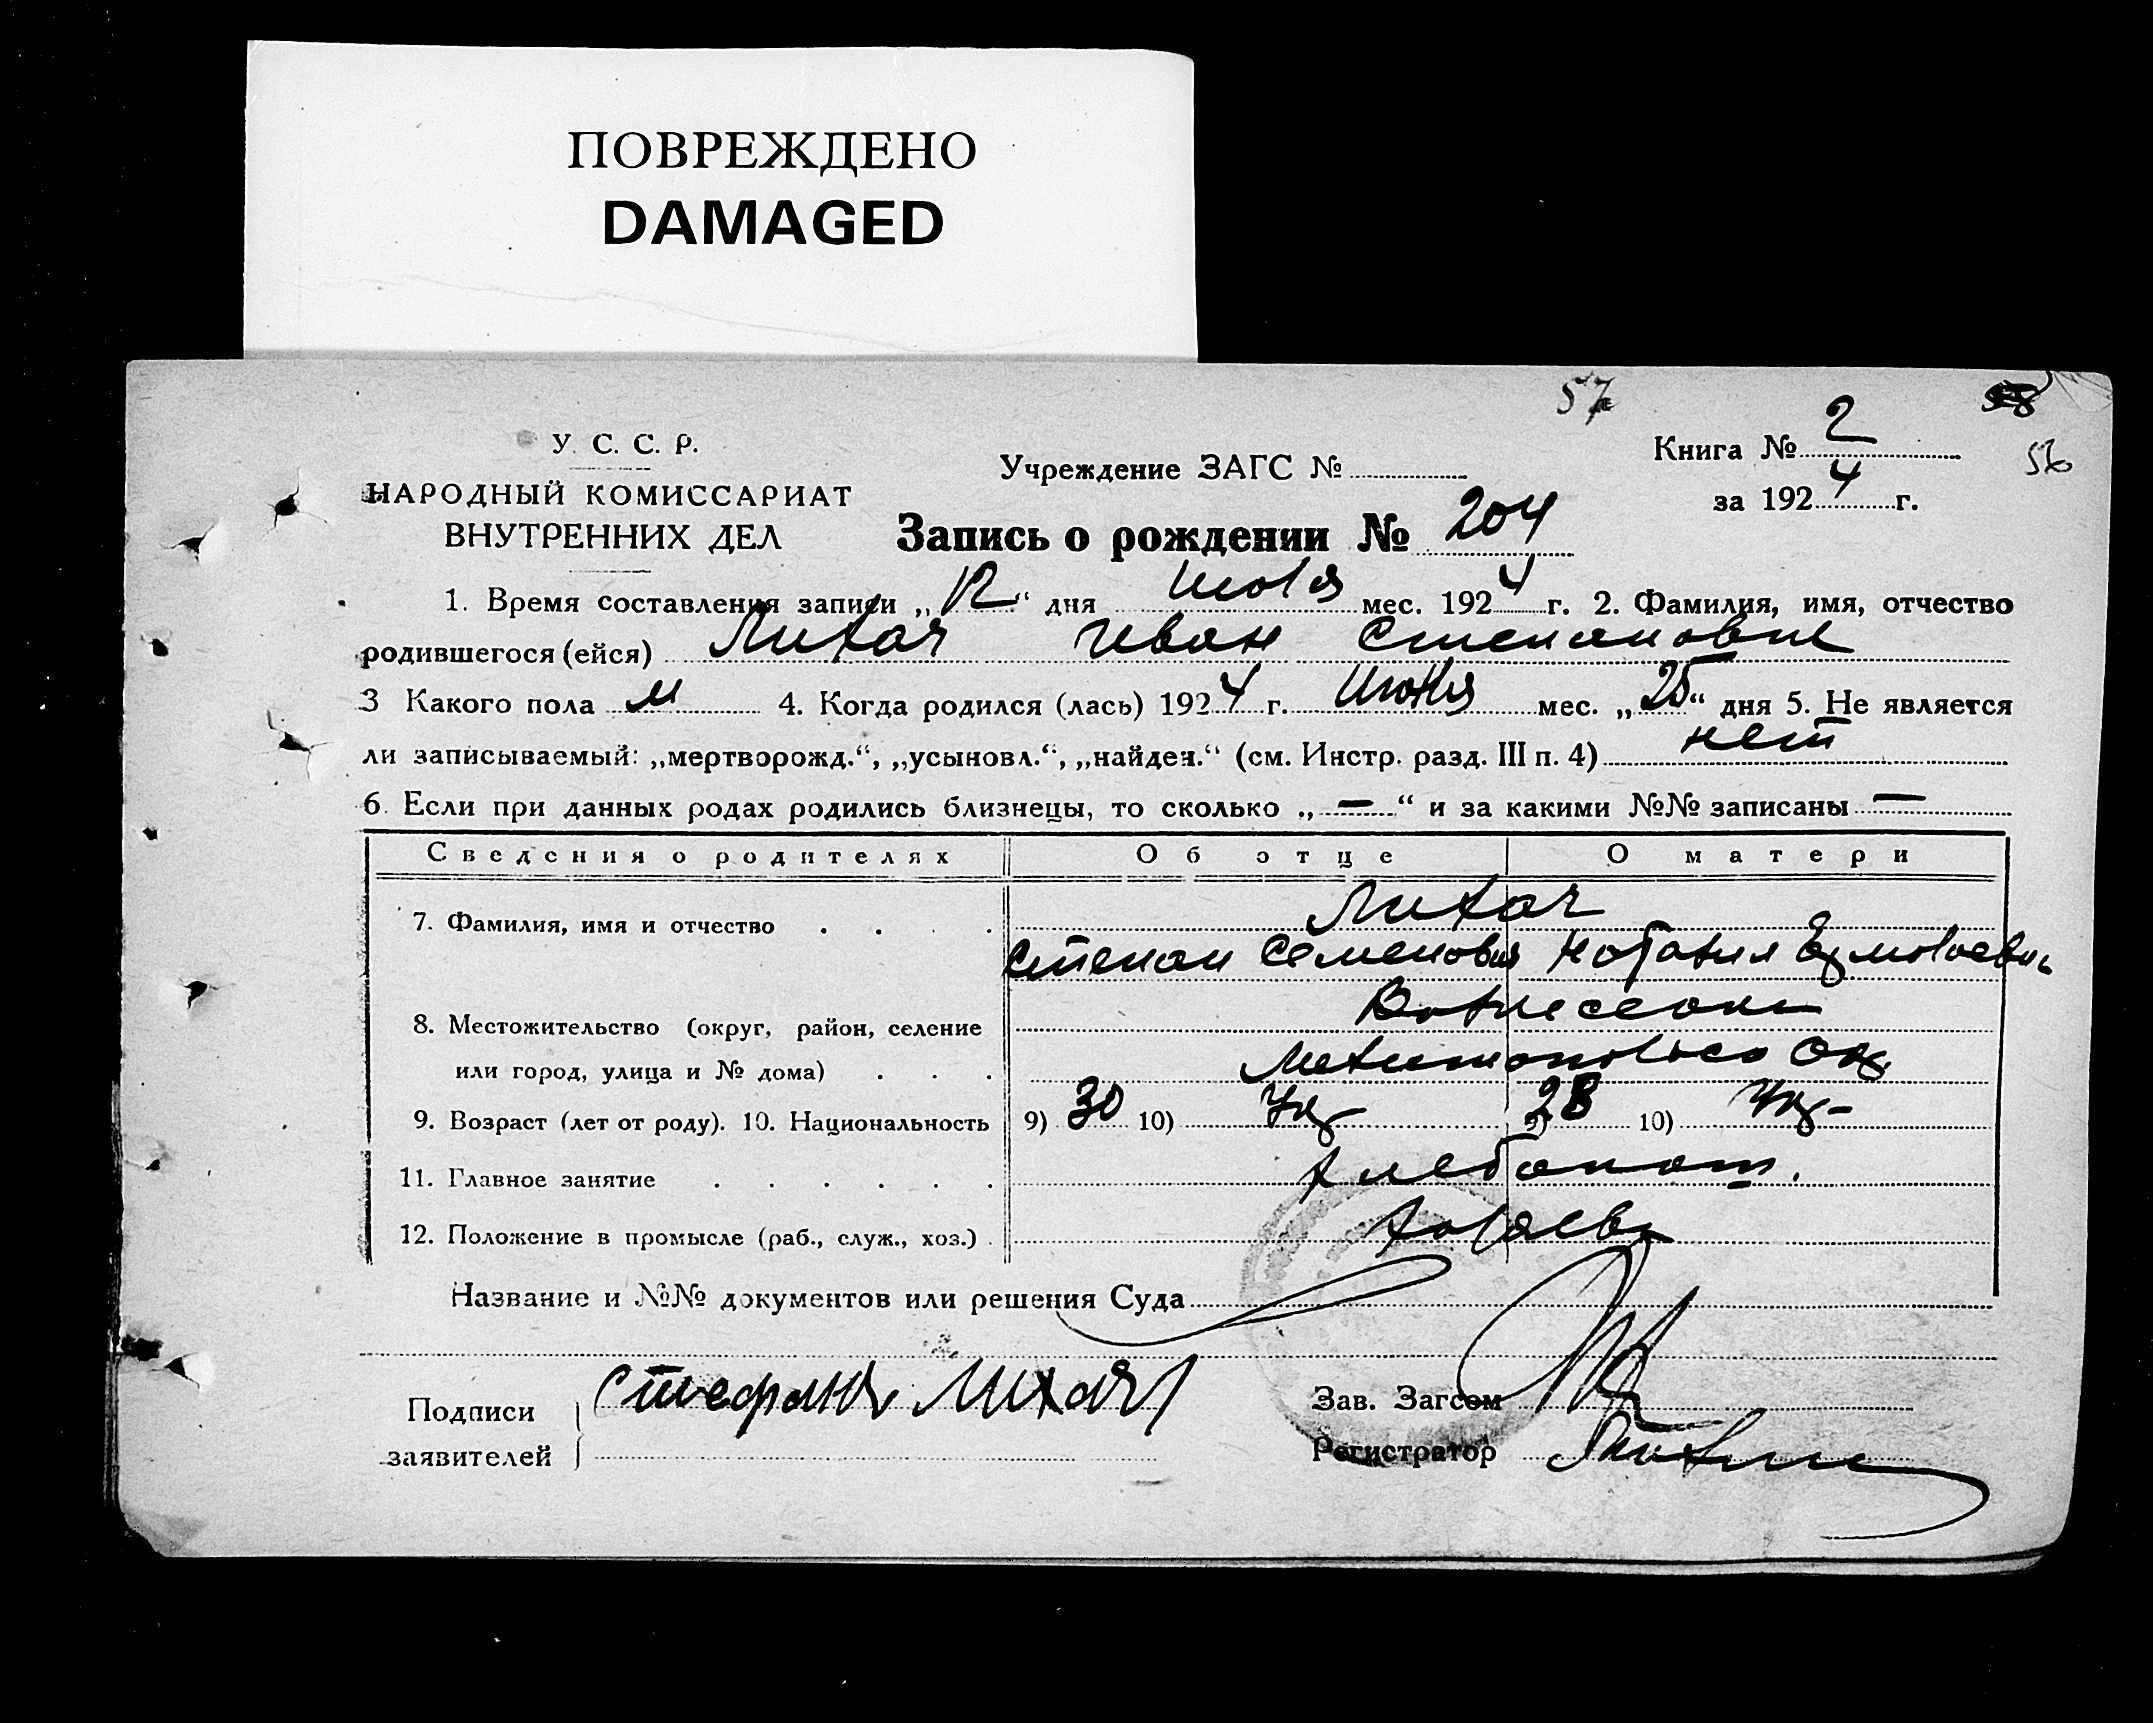 ПОВРЕЖДЕНО
DAMAGED
57
58
56
У. С. С. Р.
НАРОДНЫЙ КОМИССАРИАТ
ВНУТРЕННИХ ДЕЛ
Учреждение ЗАГС №
Книга № 2
за 1924 г.
Запись о рождении № 204
1. Время составления записи „12“ дня июля мес. 1924 г. 2. Фамилия, имя, отчество
родившегося (ейся) Лихач Иван Степанович
3 Какого пола м 4. Когда родился (лась) 1924 г. Июня мес. „25“ дня 5. Не является
ли записываемый: „мертворожд.“, „усыновл.“, „найден.“ (см. Инстр. разд. III п. 4) нет
6. Если при данных родах родились близнецы, то сколько „—“ и за какими №№ записаны —
Сведения о родителях Об отце О матери
7. Фамилия, имя и отчество Лихач
Степан Семенович Наталия
8. Местожительство (округ, район, селение
или город, улица и № дома)
9. Возраст (лет от роду). 10. Национальность 9) 30 10) Ук 9) 28 10) Ук-
11. Главное занятие хлебопаш.
12. Положение в промысле (раб., служ., хоз.) хозяева
Название и №№ документов или решения Суда
Подписи
заявителей
Стефан Лихач
Зав. Загсом
Регистратор